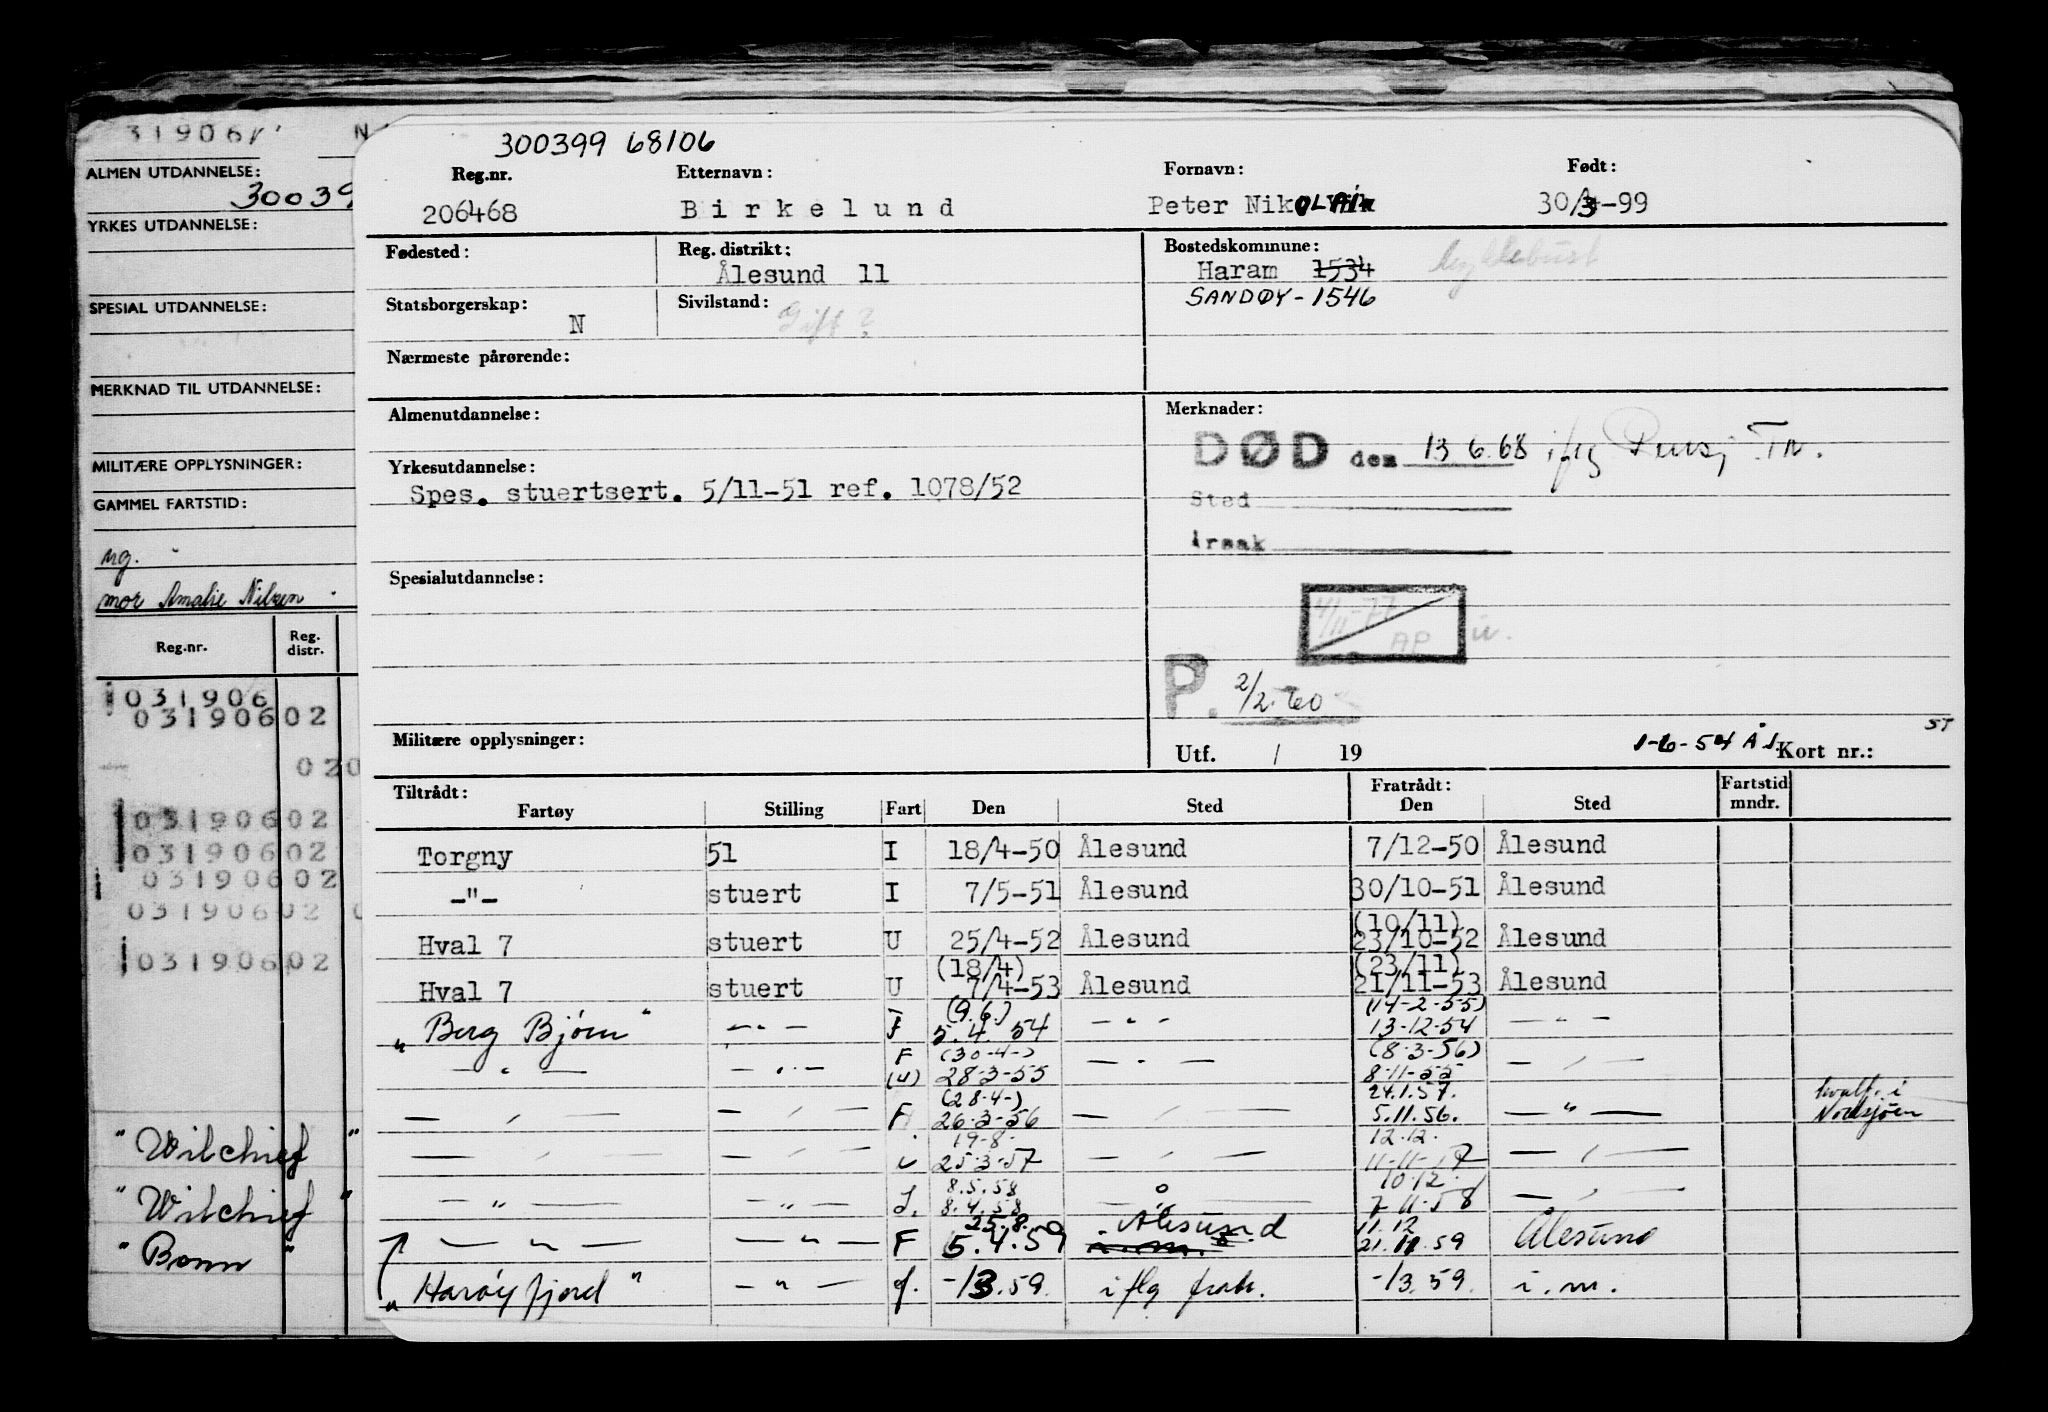 31906
ALMEN UTDANNELSE:
30039
YRKES UTDANNELSE:
SPESIAL UTDANNELSE:
MERKNAD TIL UTDANNELSE:
MILITÆRE OPPLYSNINGER:
GAMMEL FARTSTID:
ug.
mor Amalie Nilsen
Reg.nr. Reg. distr.
031906
03190602
020
03190602
03190602
03190602
03190602
03190602
"Wilchief"
"Wilchief"
"Bonn"
300399 68106
Reg.nr. Etternavn: Fornavn: Født:
206468 Birkelund Peter NikOLAi 30/3-99
Fødested: Reg. distrikt: Bostedskommune:
Ålesund 11 Haram 1534
SANDØY - 1546
Statsborgerskap: Sivilstand:
N Gift ?
Nærmeste pårørende:
Almenutdannelse: Merknader:
DØD den 13 6.68 iflg Pensj TN.
Yrkesutdannelse:
Spes. stuertsert. 5/11-51 ref. 1078/52
Sted
Årsak
Spesialutdannelse:
11-77
AP
P. 2/2.60
Militære opplysninger: Utf. / 19 1-6-54 Ål. Kort nr.:
ST
Tiltrådt: Fratrådt: Fartstid
Fartøy Stilling Fart Den Sted Den Sted mndr.
Torgny 51 I 18/4-50 Ålesund 7/12-50 Ålesund
-"- stuert I 7/5-51 Ålesund 30/10-51 Ålesund
(10/11)
Hval 7 stuert U 25/4-52 Ålesund 23/10-52 Ålesund
(18/4) (23/11)
Hval 7 stuert U 7/4-53 Ålesund 21/11-53 Ålesund
(9.6.) (14-2-55)
"Berg Bjørn" -"- F 5.4.54 -"- 13-12-54 -"-
F (30-4-) (8-3-56)
-"- -"- (U) 28-3-55 -"- 8-11-55 -"-
(28-4-) 24.1.57. hvalf. i
-"- -"- F 26-3-56 -"- 5.11.56. -"- Nordsjøen
19-8- 12.12.
-"- -"- 25-3-57 -"- 11-11-57 -"-
8.5.58 10.12.
-"- -"- 8.4.58 -"- 7-11-58 -"-
25.8. 11.12
-"- -"- F 5.4.59 Ålesund 21.11.59 Ålesund
"Harøyfjord" -"- f. -/3.59. iflg frab. -/3.59. i.m.